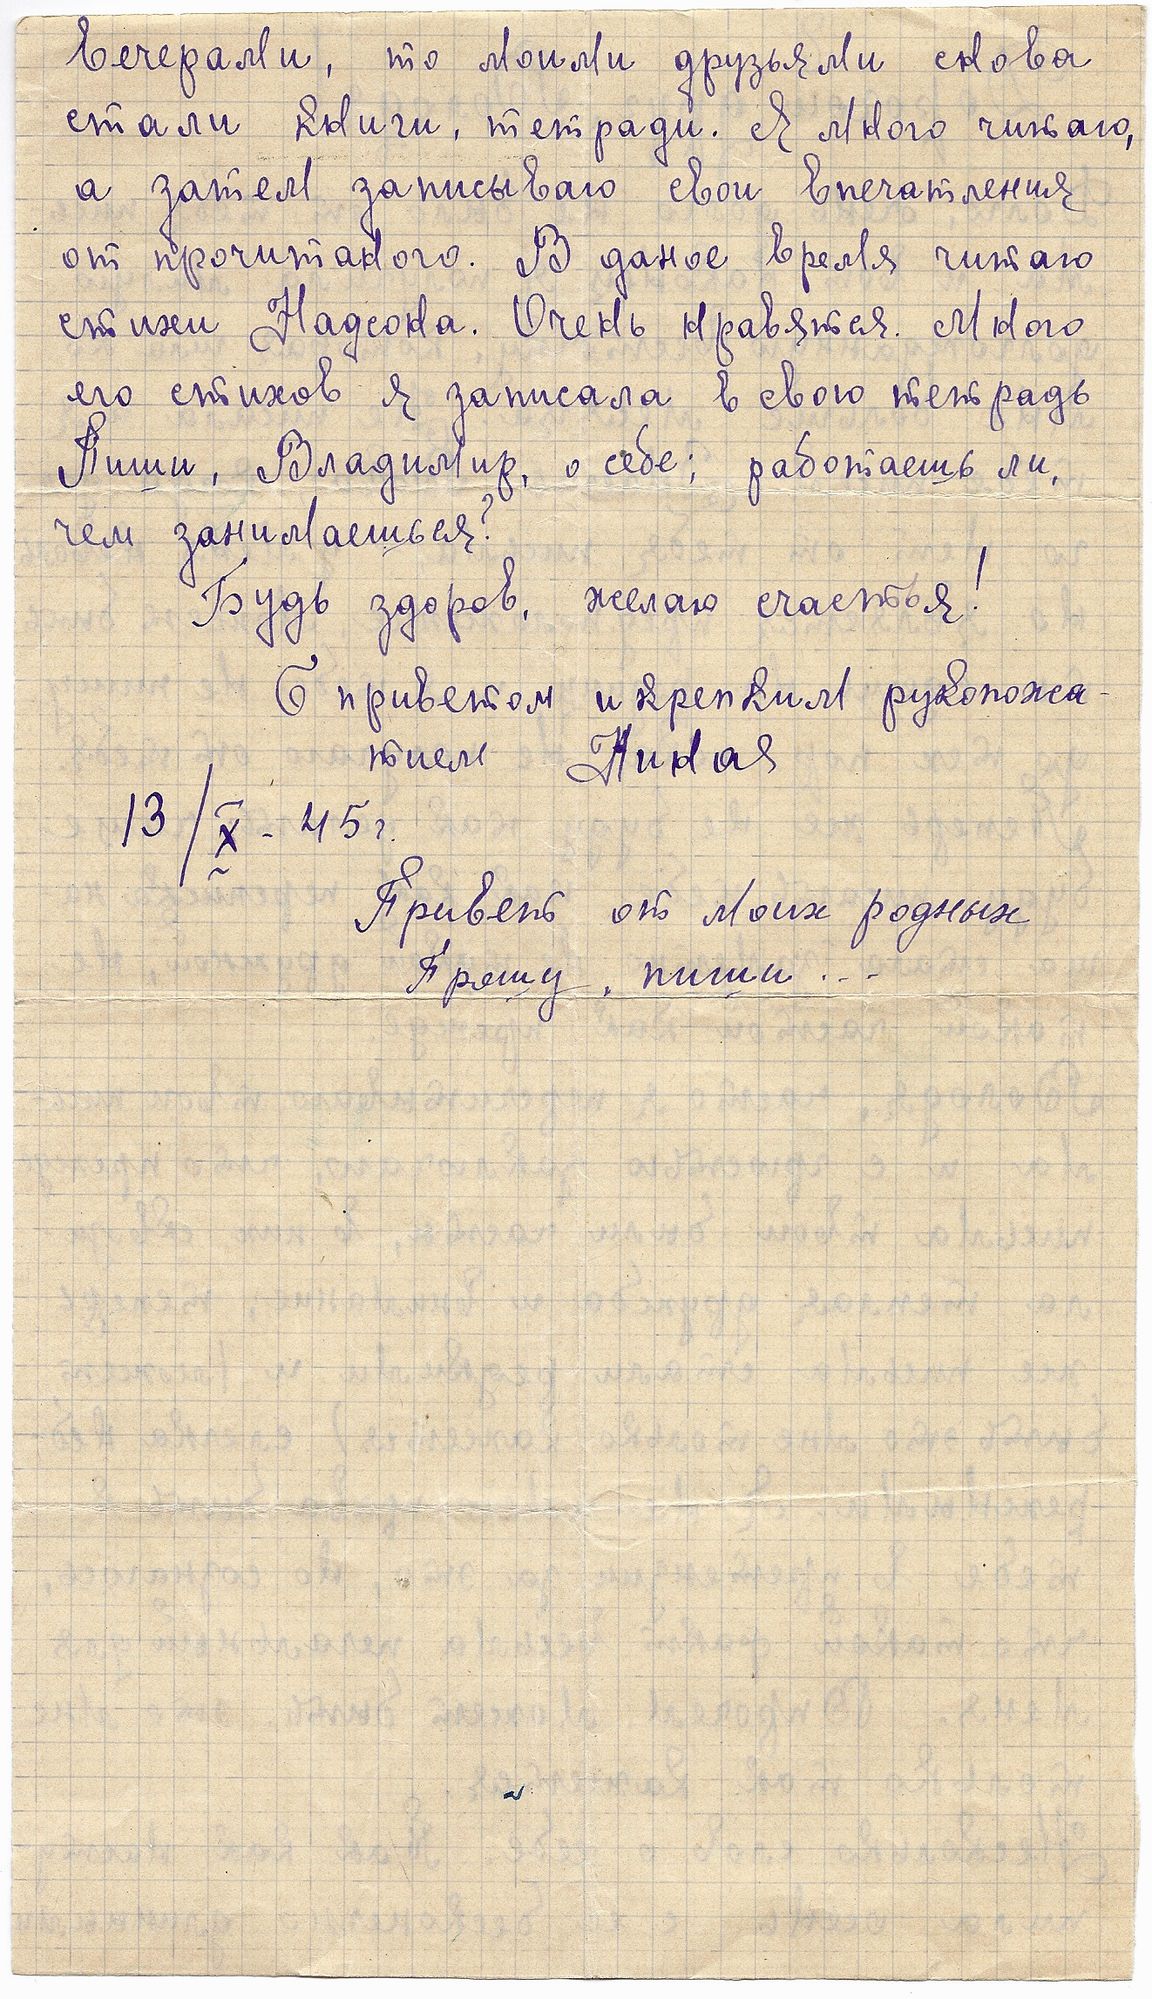 вечерами, то моими друзьями снова
стали книги, тетради. Я много читаю,
а затем записываю свои впечатления
от прочитаного. В даное время читаю
стихи Надсона. Очень нравятся. Много
его стихов я записала в свою тетрадь
Пиши, Владимир, о себе; работаешь ли,
чем занимаешься?
Будь здоров, желаю счастья!
С приветом и крепким рукопожа-
тием Нина
13/X - 45 г.
Привет от моих родных
Прошу, пиши ...